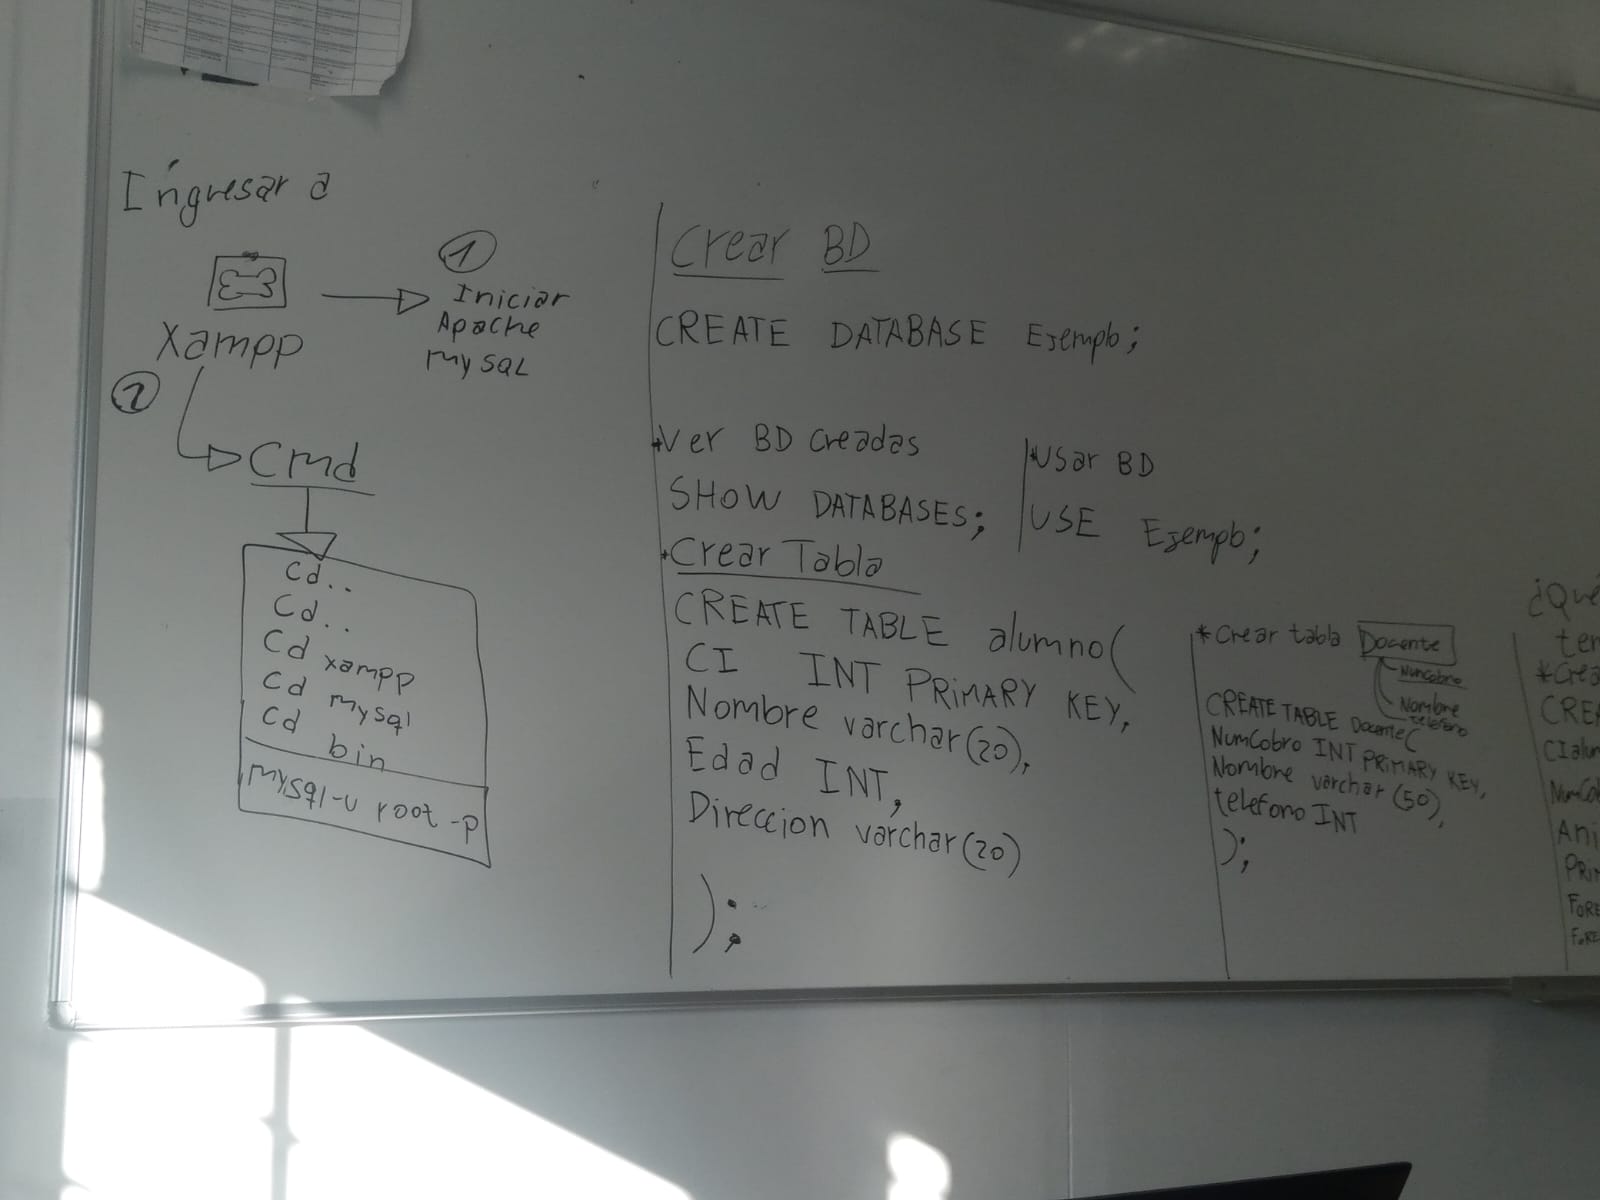 Ingresar a
Xampp
1
Iniciar
Apache
MySQL
2
Cmd
cd..
cd..
cd xampp
cd mysql
cd bin
mysql -u root -p
Crear BD
CREATE DATABASE Ejemplo;
*Ver BD creadas
SHOW DATABASES;
*Usar BD
USE Ejemplo;
*Crear Tabla
CREATE TABLE alumno(
CI INT PRIMARY KEY,
Nombre varchar(20),
Edad INT,
Direccion varchar(20)
);
*Crear tabla Docente
NumCobro
Nombre
telefono
CREATE TABLE Docente(
NumCobro INT PRIMARY KEY,
Nombre varchar(50),
telefono INT
);
¿Qué
ter
*Crea
CRE
CIalu
NumCo
Ani
PRI
FORE
FORE